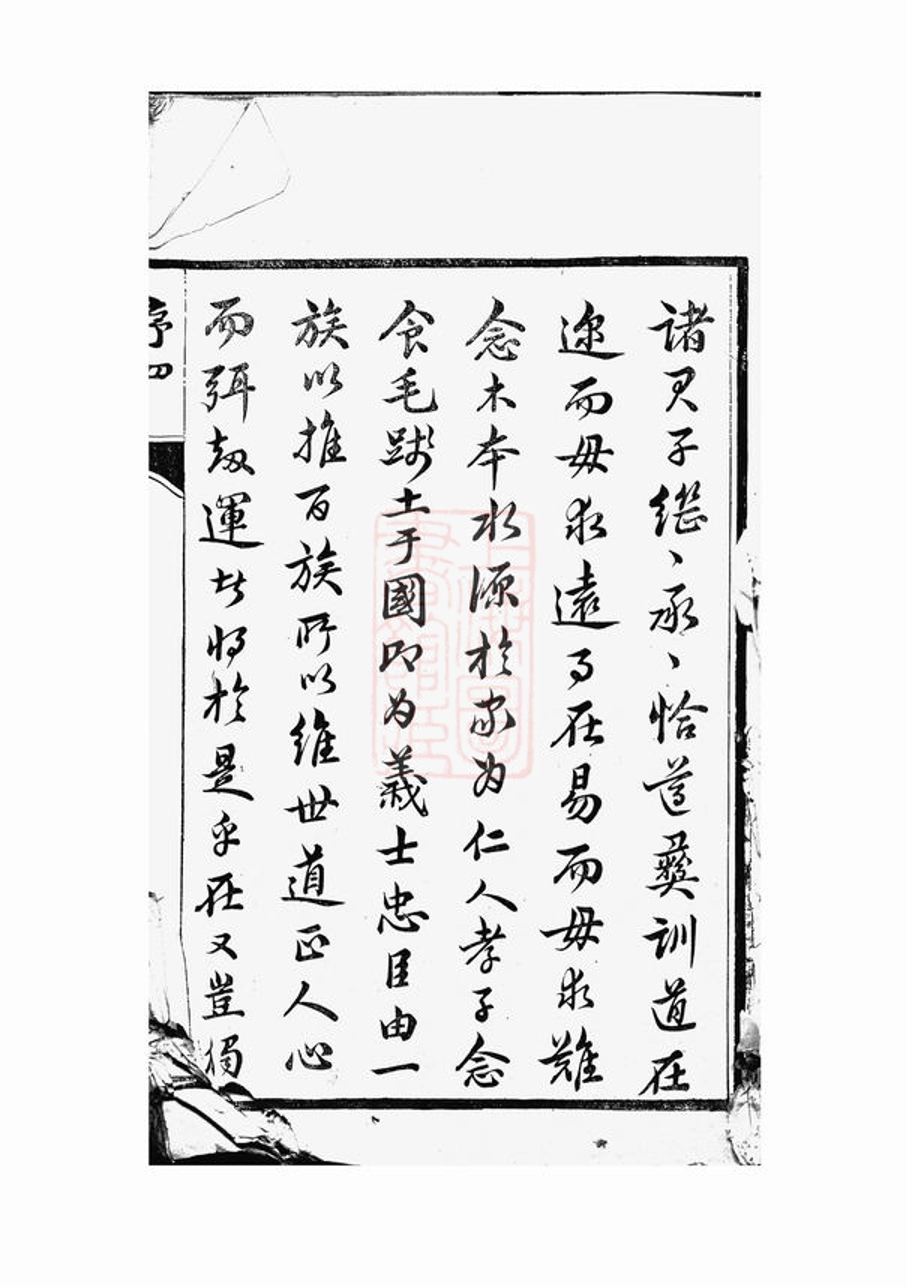 諸君子繼、承、恰遵彝訓道在
邇而毋求遠事在易而毋求難
念木本水源於家為仁人孝子念
食毛踐土于國即為義士忠臣由一
族以推百族所以維世道正人心
而弭劫運者將於是乎在又豈獨
序四